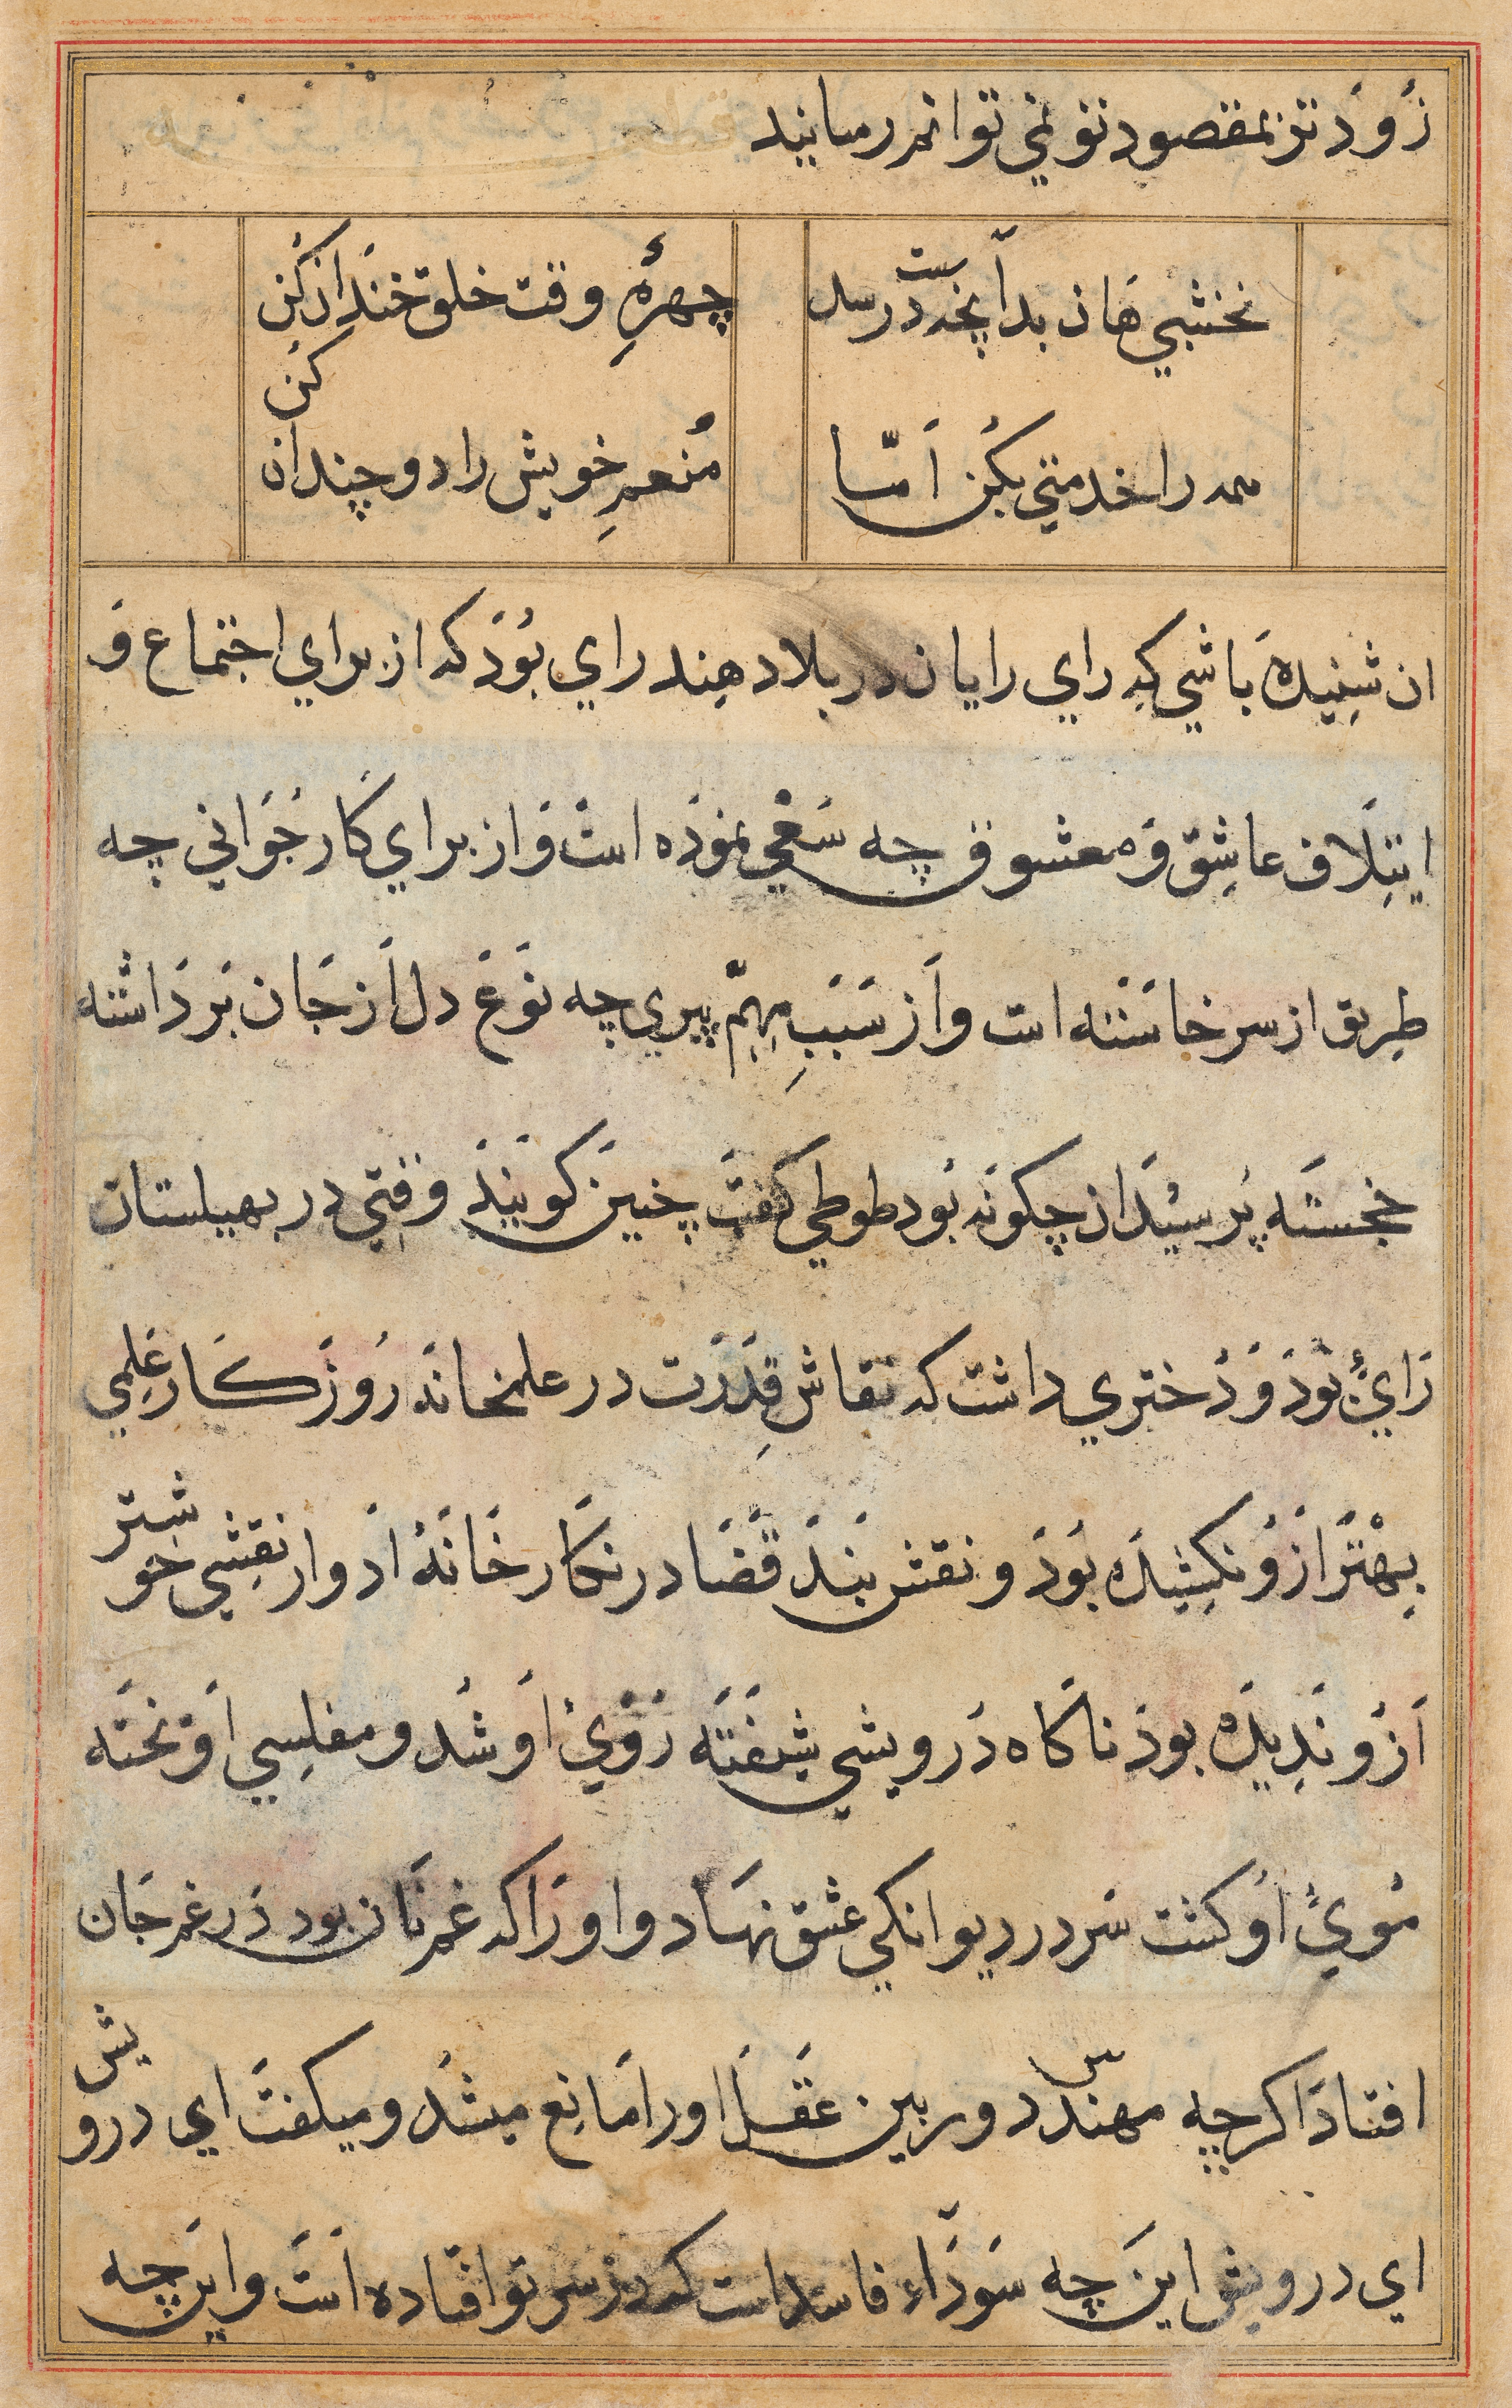 زُودتر بمقصود تو نمي توانم رسانيد
نخشبي هان بدآنچه دست رسد چهرهٔ وقت خلق خندان كن
همه را خدمتي بكن امّا مُنعمِ خويش را دو چندان كن
ان شنيده باشي كه راي رايان در بلاد هند راي بُوذ كه از براي اجتماع وَ
ايتلاف عاشق وَ معشوق چه سَعْي نموذه است وَ از براي كار جَوَاني چه
طريق از سر خاسته است وَاز سَبَبِ مهمّ پيري چه نَوع دل اَز جَان بَردَاشته
خجسته پُرسيد ان چكونه بُود طوطي كفت چنين كويند وقتي در بهيلستان
رَايئ بُوذ وَ دُختري داشت كه نقاشِ قدرَت در علمخانه رُوزكار علمي
بهْتر ازو نكشيده بُوذ و نقش بَند قَضَا در نكارخَانهٔ ادوار نقشي خوشتر
اَزُو نَدِيده بوذ ناكاه دَرويشي شيفته رُوئ اُو شُد و مفلسي اوخته
مُوئ اُو كشت سَر در ديوانكي عشق نهَاد و او رَا كه غم نان بود دَر غم جَان
افتاد اكرچه مهندّس دوربين عقل او را مانع ميشُد و ميكفت اي درويش
اي درويش اين چه سَودَاء فاسد است كه در سر تو افتاده است و اين چه